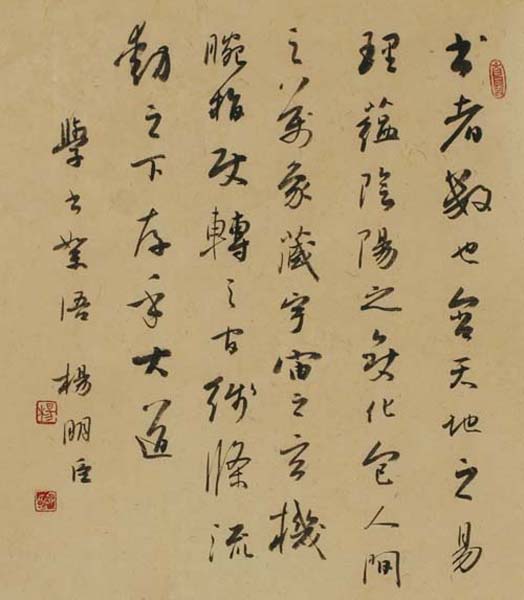 書者數也含天地之易
理蘊陰陽之變化包人間
之萬象藏宇宙之玄機
腕指使轉之間線條流
動之下存乎大道
學書 楊明臣